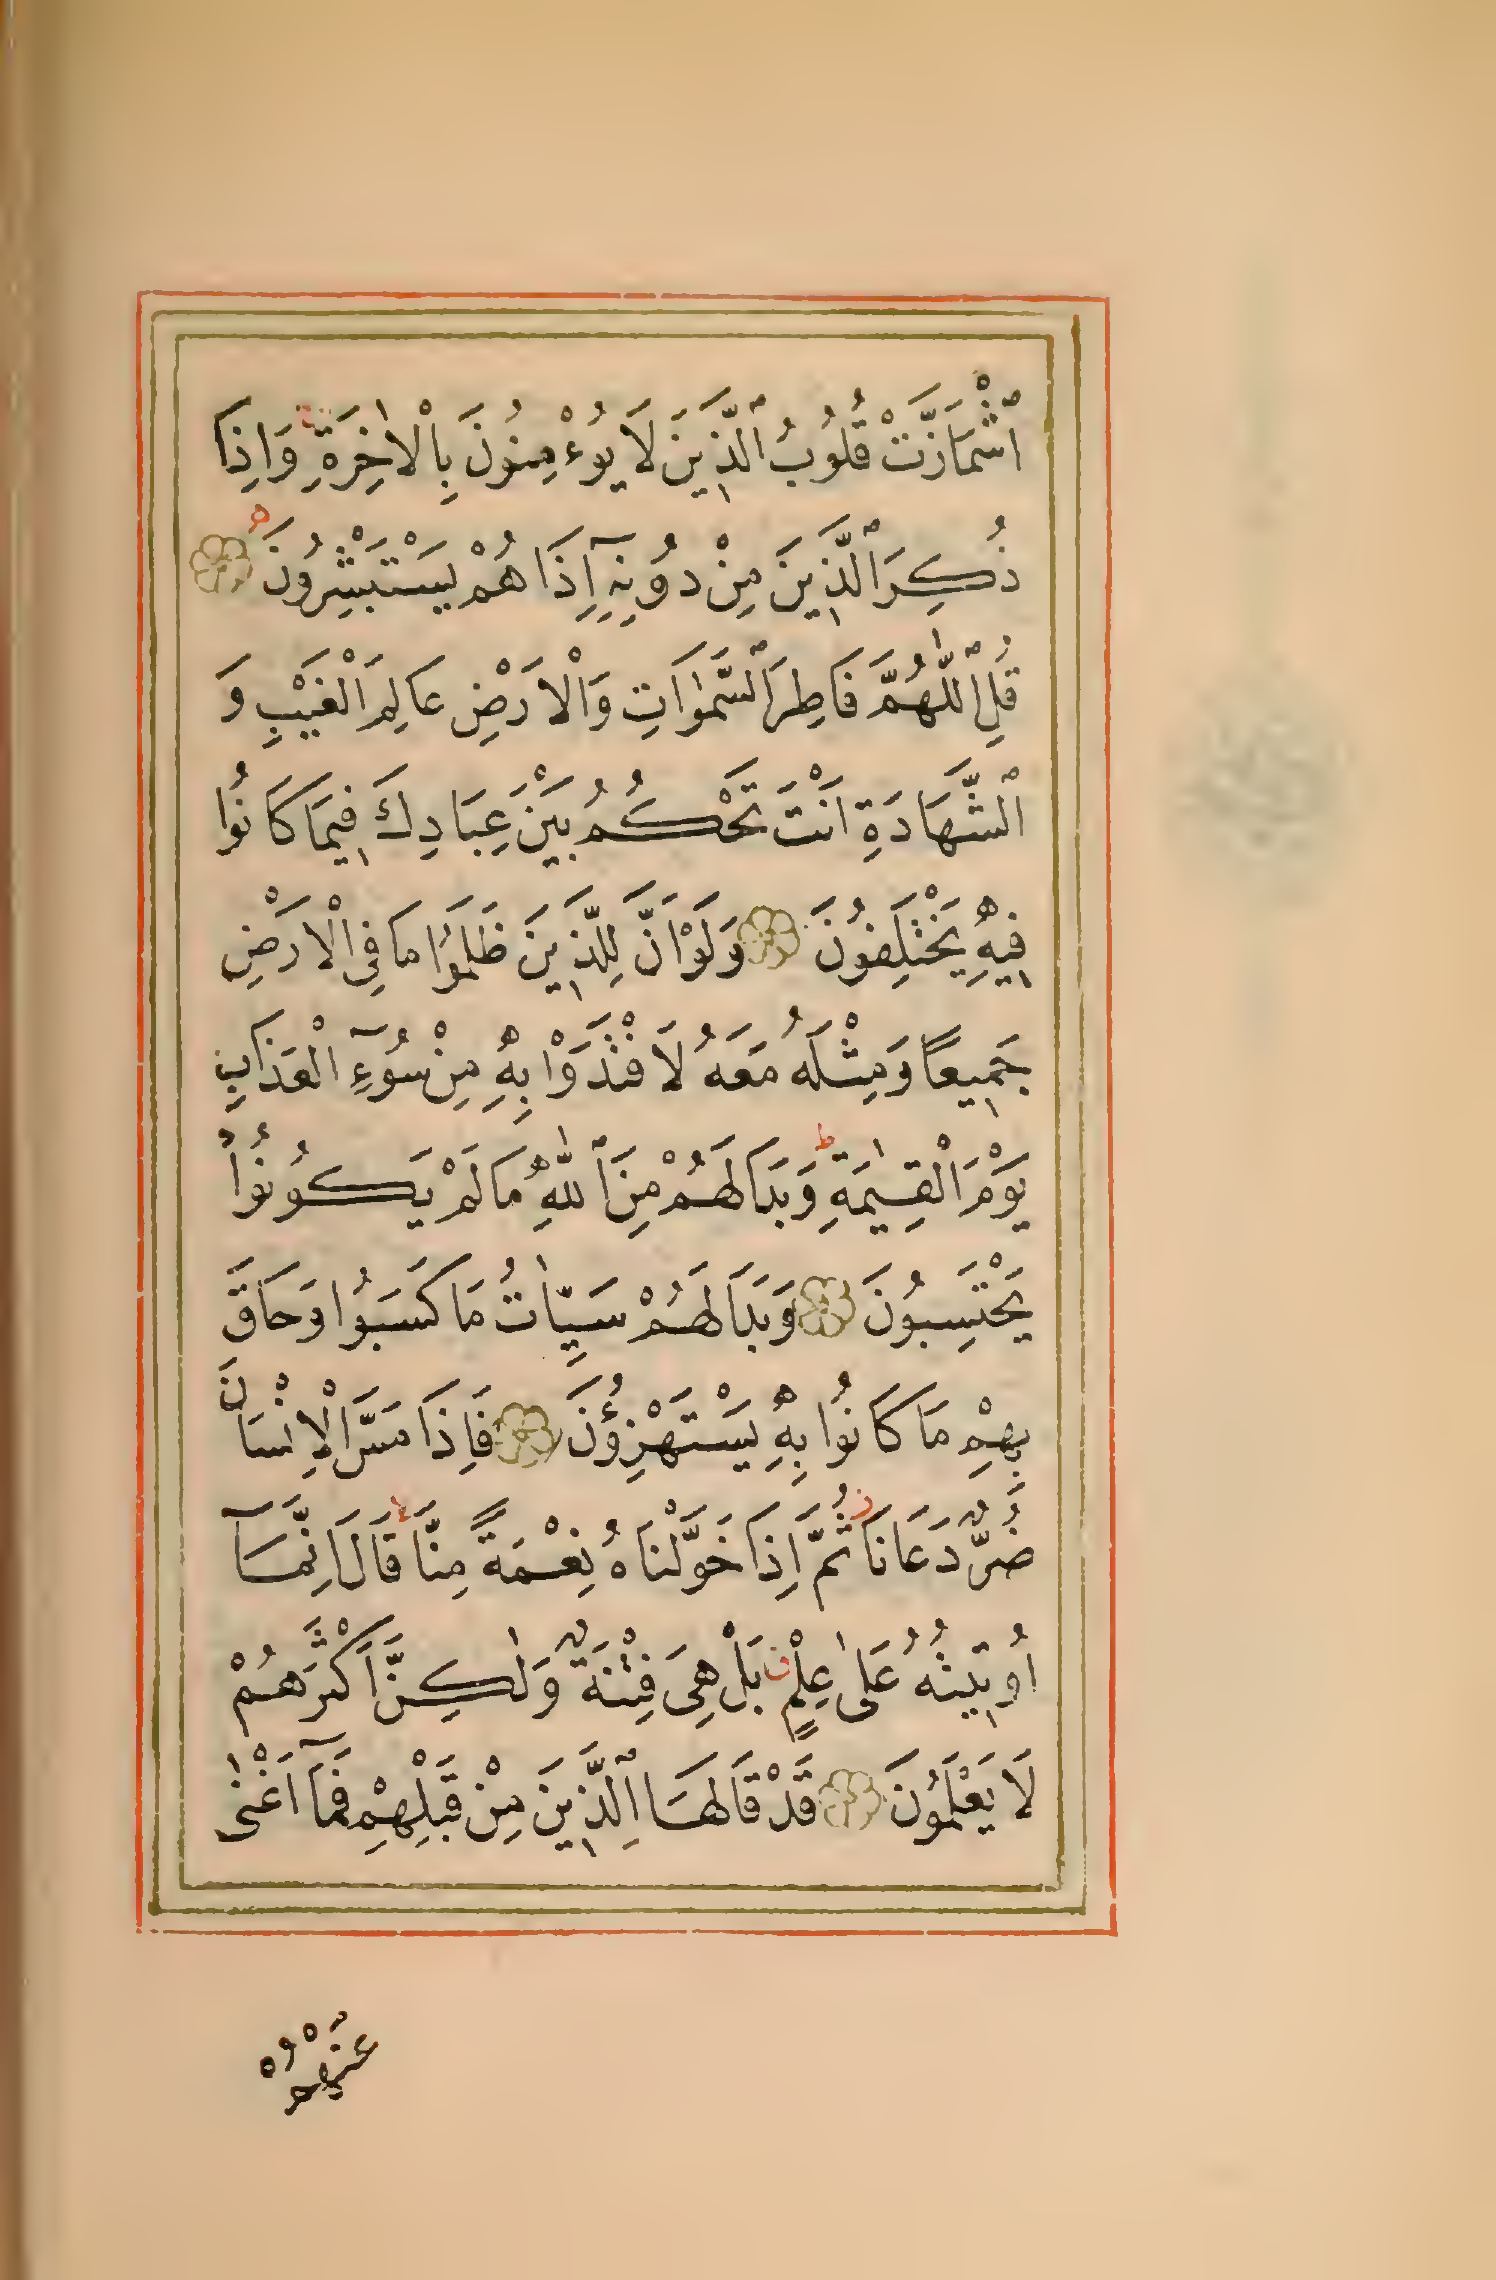 اشْمَأَزَّتْ قُلُوبُ الَّذِينَ لَا يُؤْمِنُونَ بِالْاٰخِرَةِ وَاِذَا
ذُكِرَ الَّذِينَ مِنْ دُونِهِٓ اِذَا هُمْ يَسْتَبْشِرُونَ
قُلِ اللّٰهُمَّ فَاطِرَ السَّمٰوَاتِ وَالْاَرْضِ عَالِمَ الْغَيْبِ وَ
الشَّهَادَةِ اَنْتَ تَحْكُمُ بَيْنَ عِبَادِكَ فِيمَا كَانُوا
فِيهِ يَخْتَلِفُونَ وَلَوْ اَنَّ لِلَّذِينَ ظَلَمُوا مَا فِي الْاَرْضِ
جَمِيعًا وَمِثْلَهُ مَعَهُ لَافْتَدَوْا بِهِ مِنْ سُوٓءِ الْعَذَابِ
يَوْمَ الْقِيٰمَةِ وَبَدَا لَهُمْ مِنَ اللّٰهِ مَا لَمْ يَكُونُوا
يَحْتَسِبُونَ وَبَدَا لَهُمْ سَيِّاٰتُ مَا كَسَبُوا وَحَاقَ
بِهِمْ مَا كَانُوا بِهِ يَسْتَهْزِؤُنَ فَاِذَا مَسَّ الْاِنْسَانَ
ضُرٌّ دَعَانَا ثُمَّ اِذَا خَوَّلْنَاهُ نِعْمَةً مِنَّا قَالَ اِنَّمَٓا
اُوتِيتُهُ عَلٰى عِلْمٍ بَلْ هِيَ فِتْنَةٌ وَلٰكِنَّ اَكْثَرَهُمْ
لَا يَعْلَمُونَ قَدْ قَالَهَا الَّذِينَ مِنْ قَبْلِهِمْ فَمَٓا اَغْنٰى
عَنْهُمْ